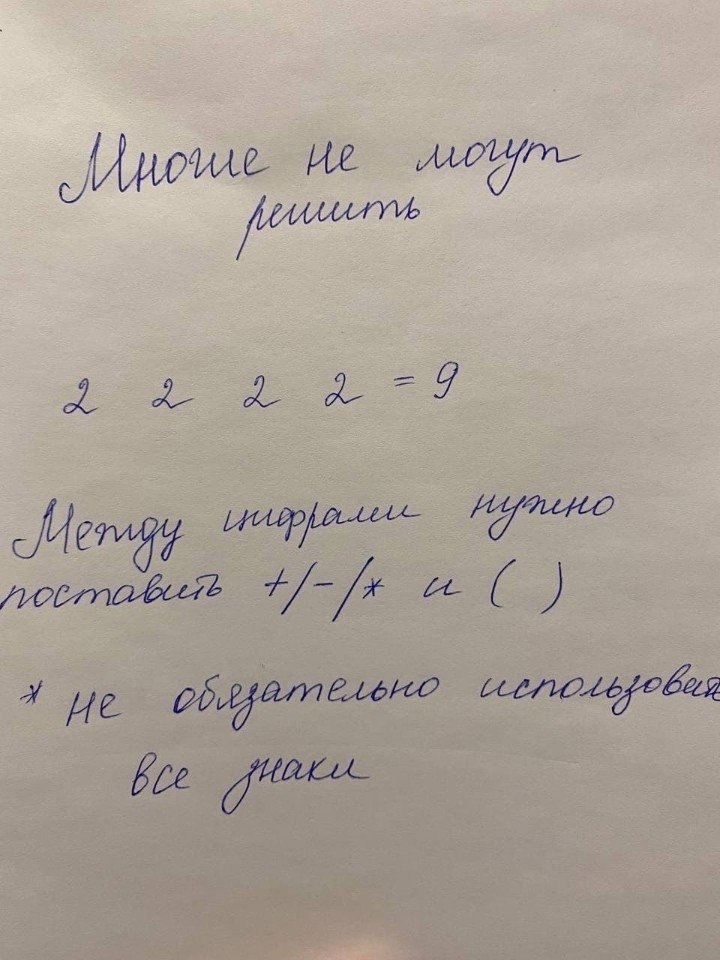 Многие не могут
решить
2 2 2 2 = 9
Между цифрами нужно
поставить +/-/* и ( )
* не обязательно использовать
все знаки